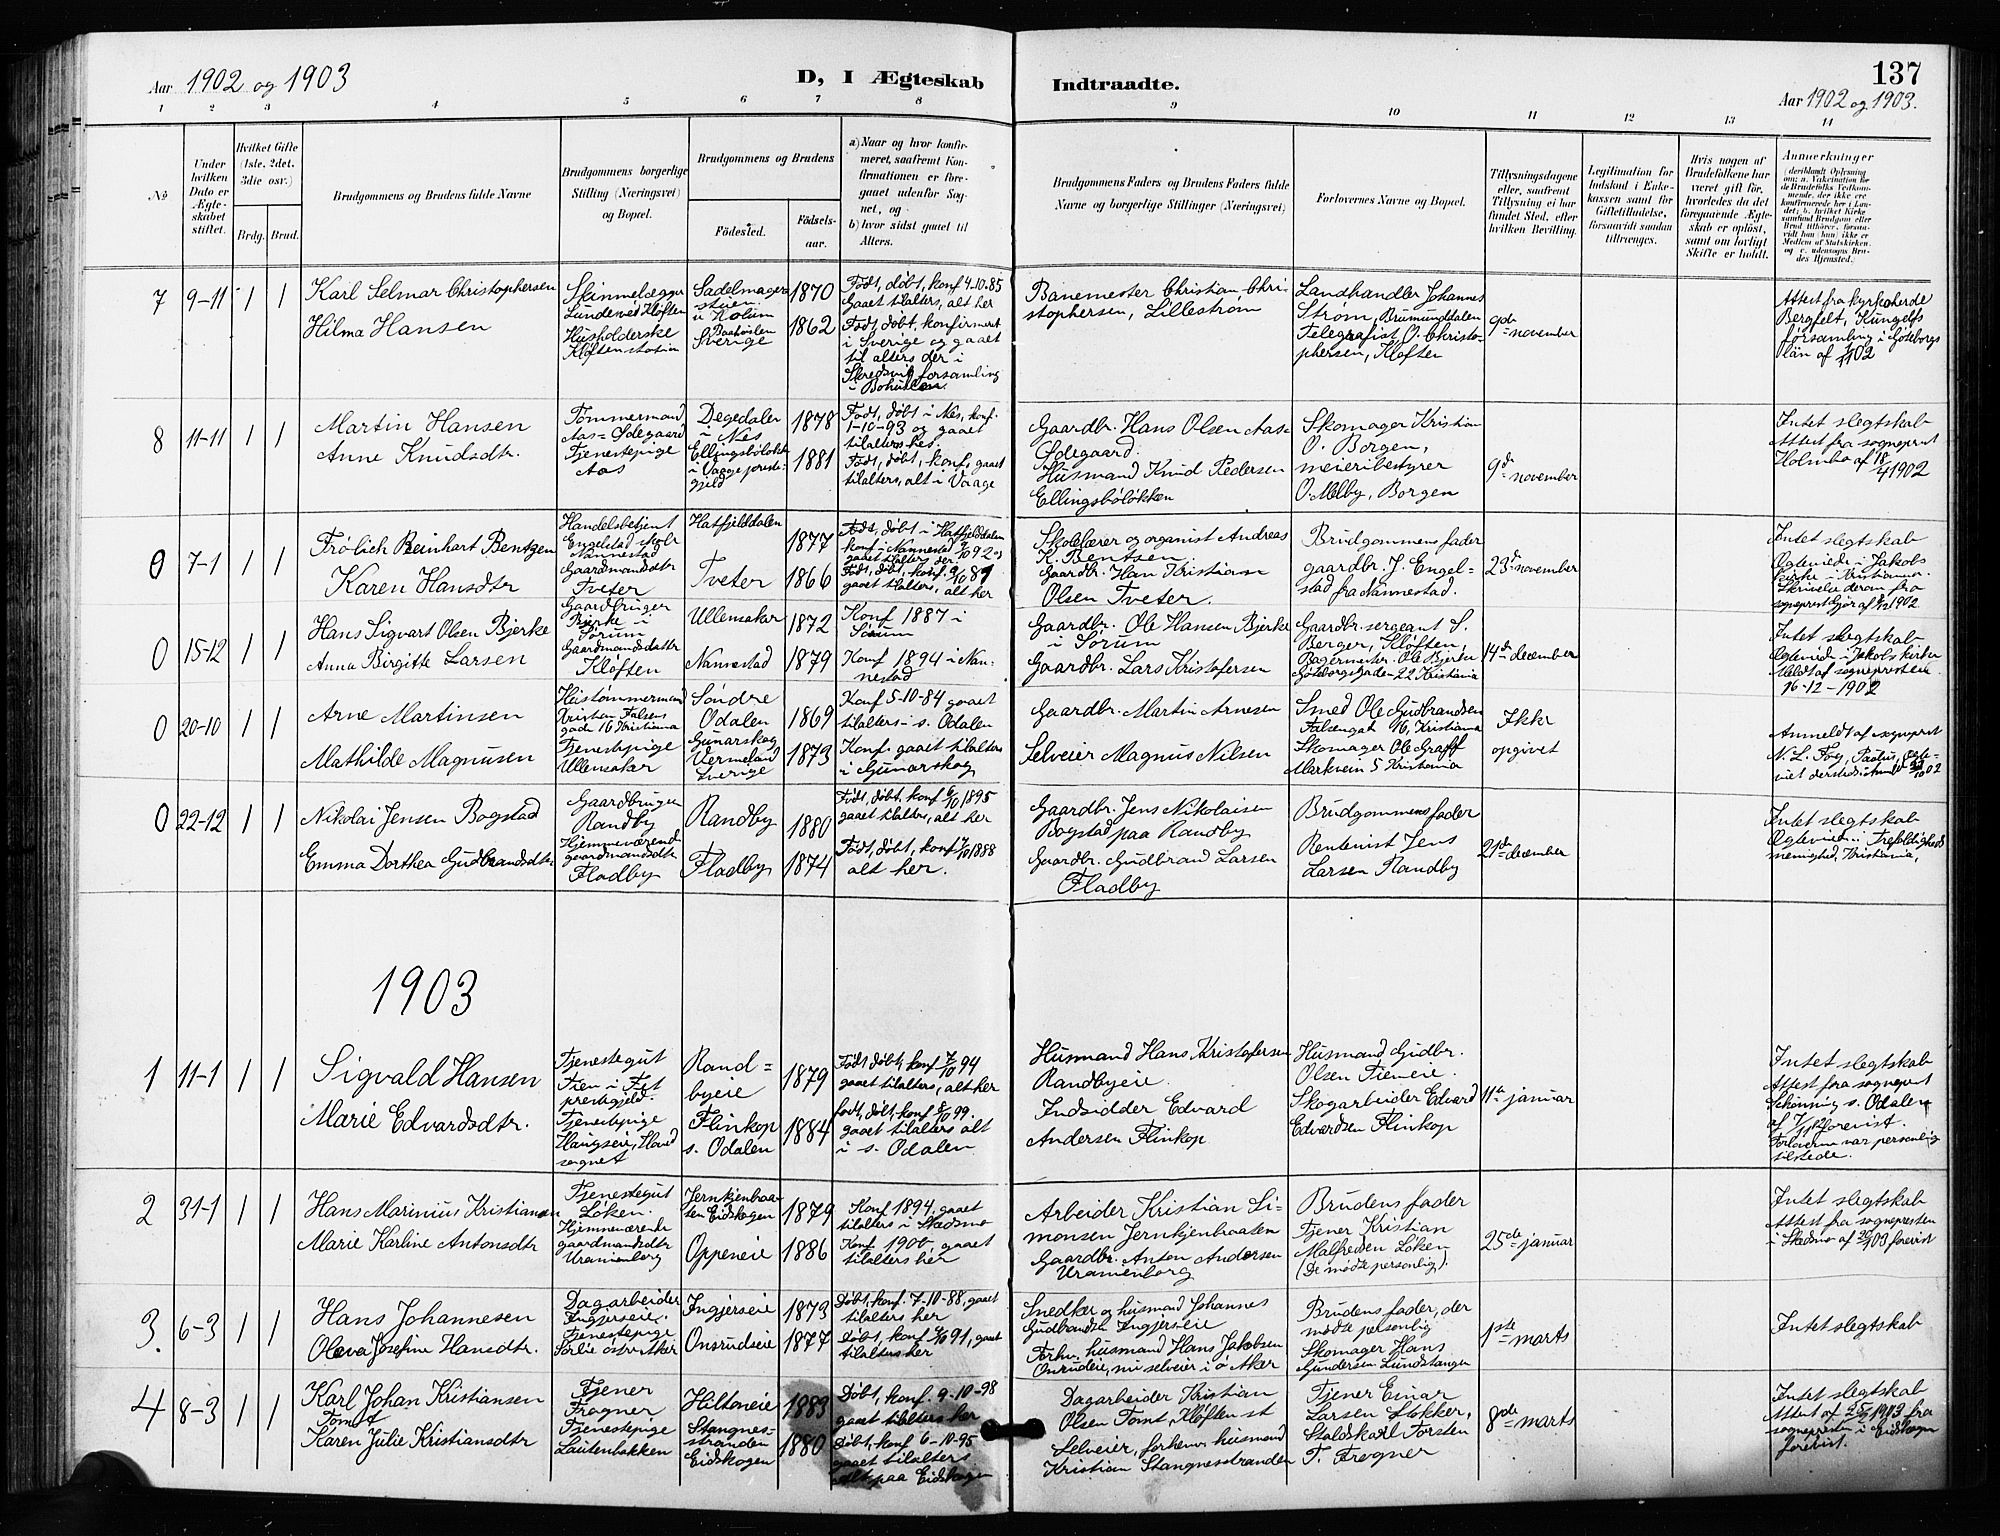 Aar 1902 og 1903
D, I Ægteskab
Indtraadte.
137
Aar 1902 og 1903.
1 2 3 4 5 6 7 8 9 10 11 12 13 14
No.
Under hvilken Dato er Ægteskabet stiftet.
Hvilket Gifte (1ste, 2det, 3die osv.)
Brdg. Brud.
Brudgommens og Brudens fulde Navne
Brudgommens borgerlige Stilling (Næringsvei) og Bopæl.
Brudgommens og Brudens
Fødested.
Fødselsaar.
a) Naar og hvor konfirmeret, saafremt Konfirmationen er foregaaet udenfor Sognet, og
b) hvor sidst gaaet til Alters.
Brudgommens Faders og Brudens Faders fulde Navne og borgerlige Stillinger (Næringsvei)
Forlovernes Navne og Bopæl.
Tillysningsdagene eller, saafremt Tillysning ei har fundet Sted, efter hvilken Bevilling.
Legitimation for Indskud i Enkekassen samt for Giftetilladelse, forsaavidt saadan tiltrænges.
Hvis nogen af Brudefolkene har været gift før, hvorledes da det foregaaende Ægteskab er opløst, samt om lovligt Skifte er holdt.
Anmerkninger
7 9-11 1 1
Karl Selmar Christophersen
Hilma Hansen
Skinnelægger
Lunde ved Kløften
Husholderske
Kløften station
1870
1862
Født, døbt, konf 4.10.85
Gaaet tilalters, alt her
Født, døbt, konfirmeret
i Sverige og gaaet
til alters der i
forsamling
Banemester Christian Christophersen, Lillestrøm
Landhandler Johannes
Strøm, Brumunddalen
Telegrafist O. Christophersen, Kløften
9de november
8 11-11 1 1
Martin Hansen
Anne Knudsdtr.
Tømmermand
Aas=Ødegaard
Tjenestepige
Aas
Degedalen
i Nes
1878
1881
Født, døbt i Nes, konf.
1-10-93 og gaaet
tilalters hes.
Født, døbt, konf, gaaet
tilalters, alt i Vaage
Gaardbr. Hans Olsen Aas=
Ødegaard.
Husmand Knud Pedersen
Ellingsbøløkken
Skomager Kristian
O. Borgen,
meieribestyrer
O. Melby, Borgen
9de november
Intet slegtskab
Attest fra sogneprest
Holmbo af 18/4 1902
0 7-1 1 1
Frølich Reinhart Bentzen
Karen Hansdtr
Handelsbetjent
Nannestad
Gaardmandsdtr
Tveter
Hatfjelddalen
Tveter
1877
1866
Skolelærer og organist Andreas
K. Bentsen.
Gaardbr. Han Kristian
Olsen Tveter.
Brudgommens fader
gaardbr. J. Engelstad fra Nannestad.
23de november
Intet slegtskab
Egteviede i Jakobs
kirke i Kristiania.
0 15-12 1 1
Hans Sigvart Olsen Bjerke
Anna Birgitte Larsen
Gaardbruger
Bjerke i
Sørum
Gaardmandsdatter
Kløften
Ullensaker
Nannestad
1872
1879
Konf 1887 i
Sørum
Konf 1894 i Nannestad
Gaardbr. Ole Hansen Bjerke
i Sørum
Gaardbr. Lars Kristofersen
Gaardbr. sergeant S.
Berger, Kløften,
Bagermester Ole Bjerke
Gøteborggaden 22 Kristiania
14de december
Intet slegtskab
Egteviede i Jakobs kirke
Meldt af sognepresten
16-12-1902
0 20-10 1 1
Arne Martinsen
Mathilde Magnusen
Hustømmermand
Kristen Falsens
gade 16 Kristiania
Tjenestepige
Ullensaker
Søndre
Odalen
Gunarskog
Vermeland
Sverige
1869
1873
Konf 5-10-84 gaaet
tilalters i s. Odalen
Konf. gaaet tilalters
i Gunarskog
Gaardbr. Martin Arnesen
Selveier Magnus Nilsen
Smed Ole Gudbrandsen
Falsensgt 16, Kristiania
Skomager Ole Graff
Markvein 5 Kristiania
Ikke
opgivet
0 22-12 1 1
Nikolai Jensen Bogstad
Emma Dorthea Gudbrandsdtr.
Gaardbruger
Randby
Hjemmeværende
gaardmandsdtr
Fladby
Randby
Fladby
1880
1874
Født, døbt, konf 6/10 1895
gaaet tilalters, alt her
Født, døbt, konf 7/10 1888
alt her.
Gaardbr. Jens Nikolaisen
Bogstad paa Randby
Gaardbr. Gudbrand Larsen
Fladby
Brudgommens fader
Rentenist Jens
Larsen Randby
21de december
Intet slegtskab
Egteviede i Trefoldigheds
menighed, Kristiania,
1903
1 11-1 1 1
Sigvald Hansen
Marie Edvardsdtr.
Tjenestegut
Tien i Fet
prestegjeld.
Tjenestepige
Haugseie, Hovind
sognet
Rand=
byeie
Flinkop
s. Odalen
1879
1884
Født døbt, konf 7/10 94
gaaet tilalters, alt her
født, døbt, konf 8/10 99.
gaaet tilalters alt
i s. Odalen
Husmand Hans Kristofersen
Randbyeie.
Indsidder Edvard
Andersen Flinkop
Husmand Gudbr.
Olsen Tieneie.
Skogarbeider Edvard
Edvardsen Flinkop
11te januar
Intet slegtskab
Attest fra sogneprest
Schønning s. Odalen
Forloverne var personlig
tilstede.
2 31-1 1 1
Hans Marinius Kristiansen
Marie Karline Antonsdtr
Tjenestegut
Løken.
Hjemmeværende
gaardmandsdtr
Uranienborg
Jernkjenbaaten Eidskogen
Oppeneie
1879
1886
Konf 1894, gaaet
tilalters i Skedsmo
Konf 1900, gaaet
tilalters her
Arbeider Kristian Simonsen Jernkjenbaaten
Gaardbr. Anton Andersen
Uranienborg
Brudens fader
Tjener Kristian
Malfredsen Løken
(De mødte personlig).
25de januar
Intet slegtskab
Attest fra sognepresten
i Skedsmo af 20/1 03 forevist
3. 6-3 1 1
Hans Johannesen
Oleva Josefine Hansdtr.
Dagarbeider
Ingjerseie.
Tjenestepige
Sørlie østre Aker
Ingjerseie
Onsrudseie
1873
1877
Døbt, konf. 7-10-88, gaaet
tilalters her
Døbt, konf 4/10 91, gaaet
tilalters her
Snedker og husmand Johannes
Gudbrandsen Ingjerseie
Forhv. husmand Hans Jakobsen
Onsrudeie, nu selveier i ø Aker
Brudens fader, der
mødte personlig
Skomager Hans
Gundersen Lundstangen
1ste marts
Intet slegtskab
4 8-3 1 1
Karl Johan Kristiansen
Tømt
Karen Julie Kristiansdtr
Tjener
Frogner
Tjenestepige
Lautenbakken
Hiltoneie
Stangnesstranden
Eidskogen
1883
1880
Døbt, konf. 9-10-98
gaaet tilalters her
Døbt, konf 6-10-95
gaaet tilalters
alt paa Eidskogen
Dagarbeider Kristian
Olsen Tømt, Kløften st
Selveier, forhenv. husmand
Kristian Stangnesstranden
Tjener Einar
Larsen Stokker,
Staldskarl Torsten
T. Frogner
8de marts
Intet slegtskab
Attest af 25/2 1903 fra
sognepresten i Eidskogen
forevist.